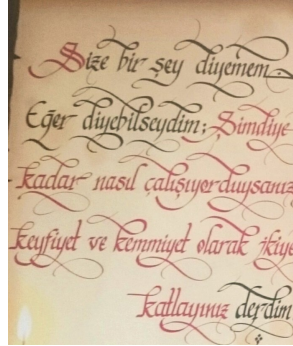 Size bir şey diyemem.
Eğer diyebilseydim; Şimdiye
kadar nasıl çalışıyorduysanız
keyfiyet ve kemmiyet olarak ikiye
katlayınız derdim